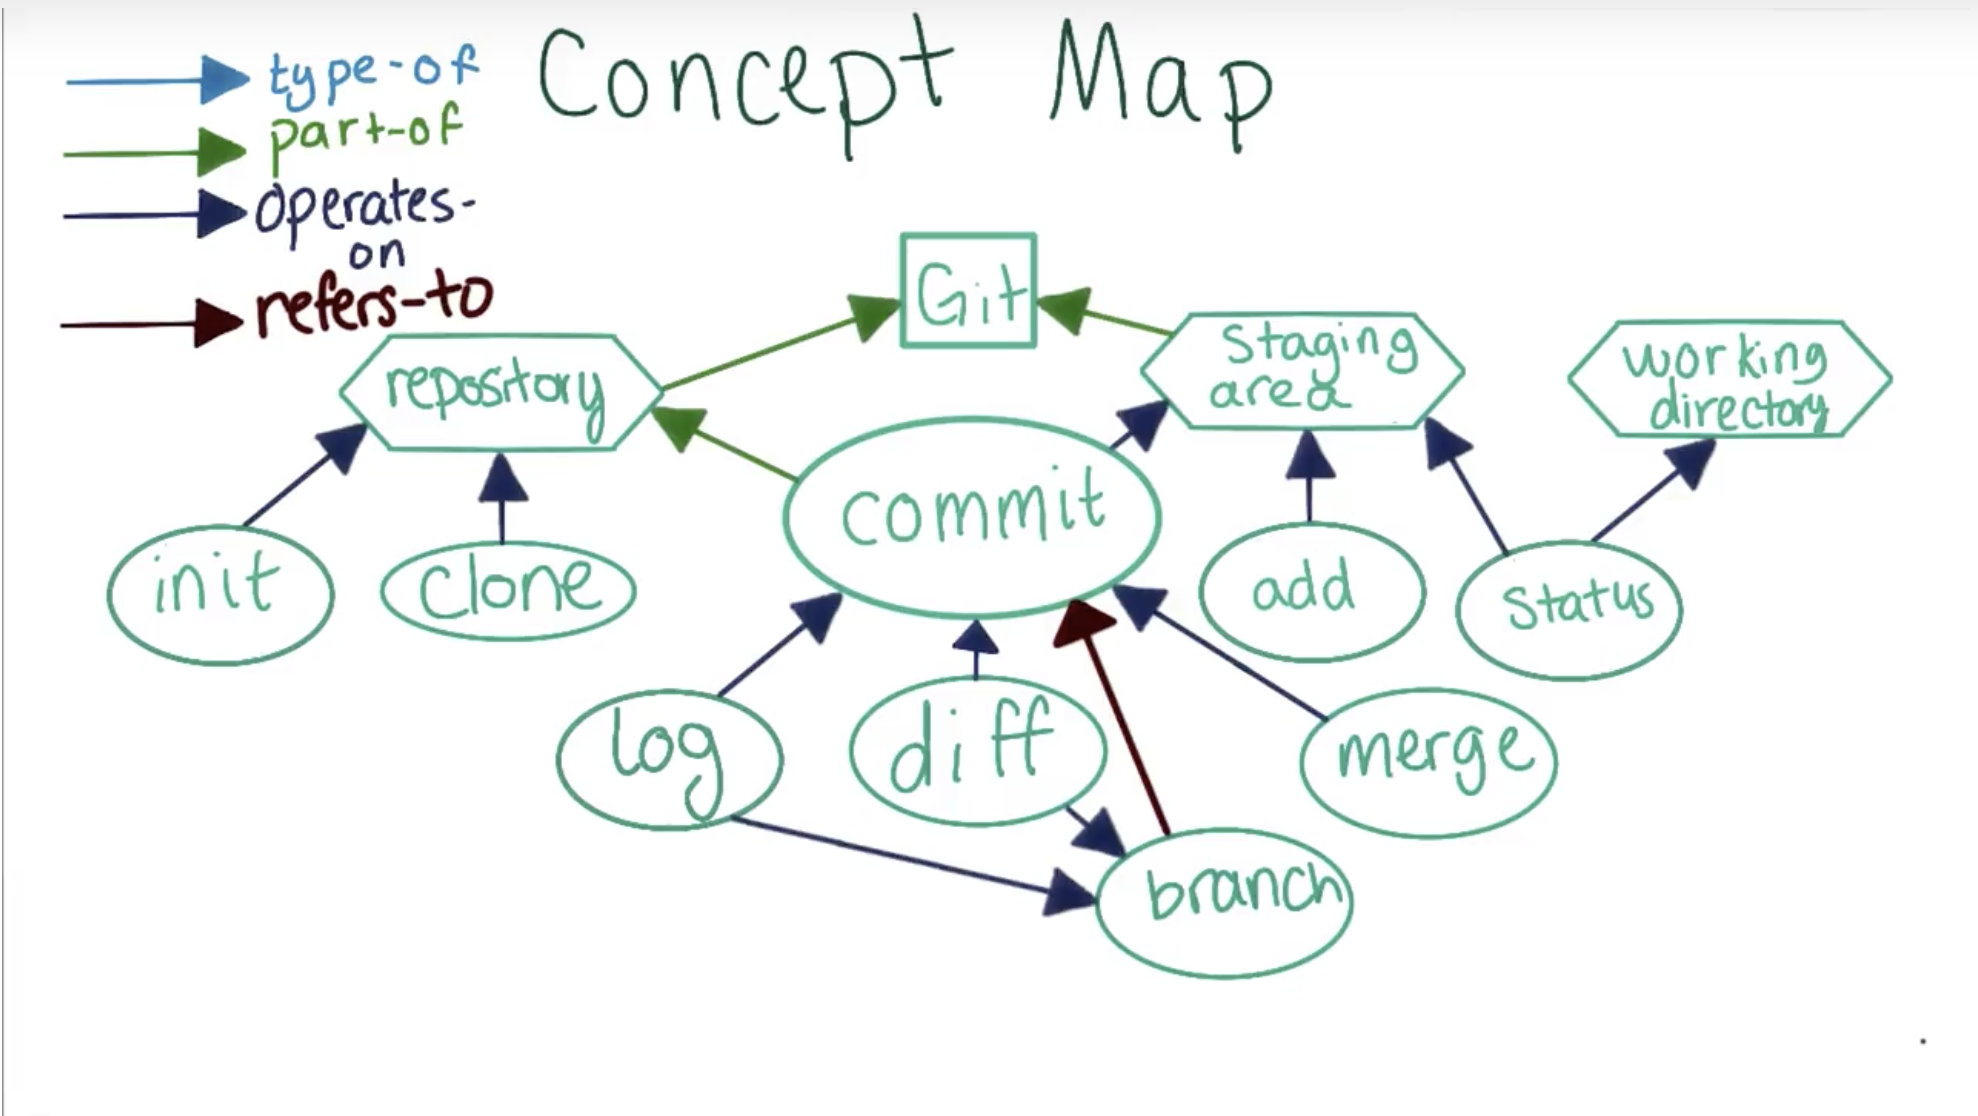 type-of
Concept Map
part-of
operates-
on
refers-to
Git
repository
Staging
area
working
directory
commit
init
Clone
add
Status
log
diff
merge
branch